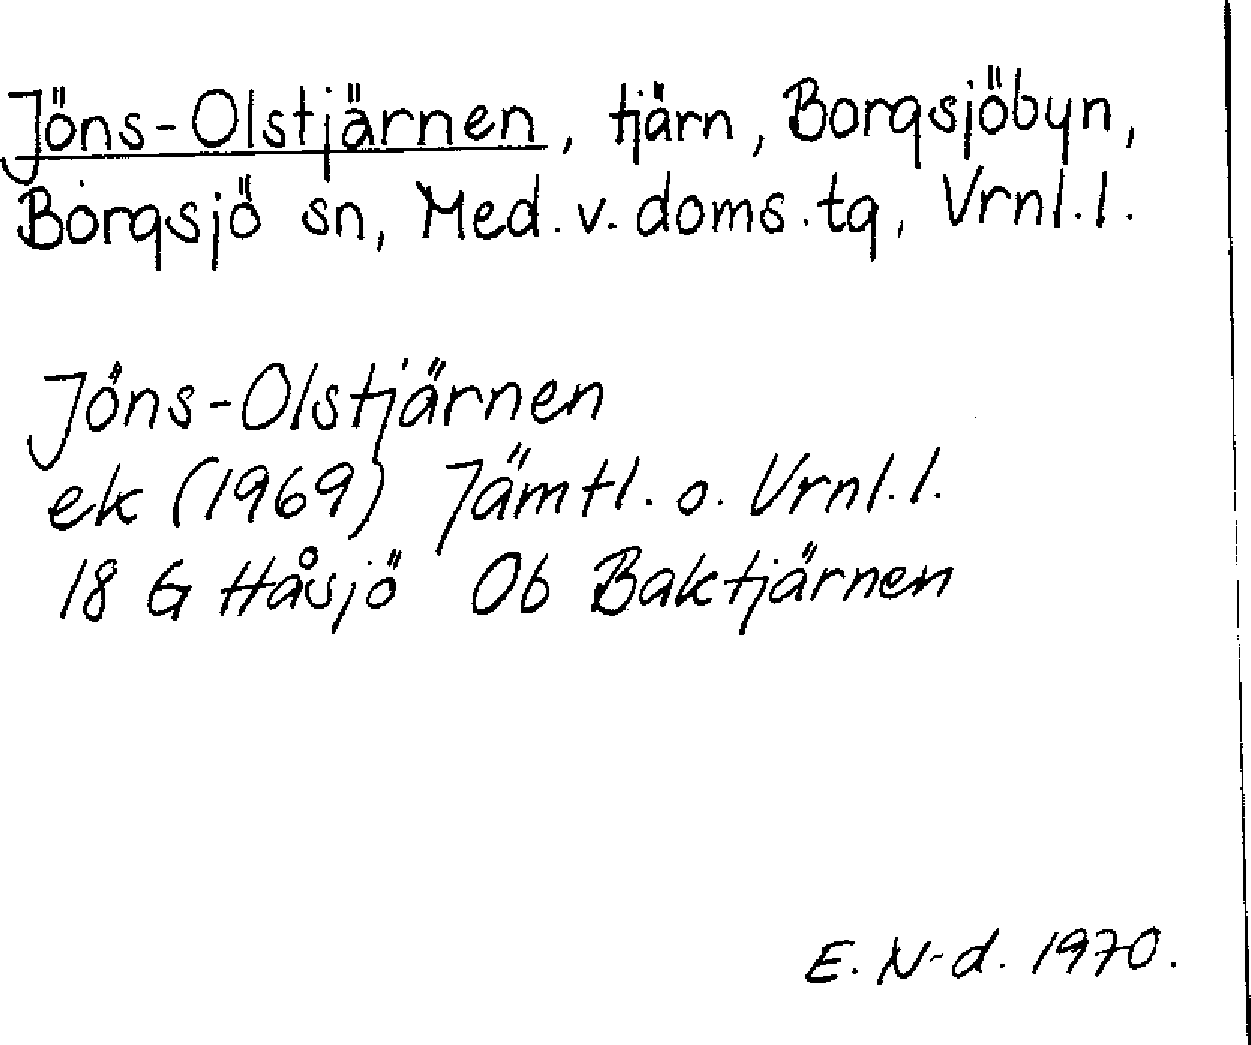 Jöns-Olstjärnen, tjärn, Borgsjöbyn,
Borgsjö sn, Med. v. doms. tg, Vrnl. l.
Jöns-Olstjärnen
ek (1969) Jämtl. o. Vrnl. l.
18 G Håsjö Ob Baktjärnen
E. N-d. 1970.